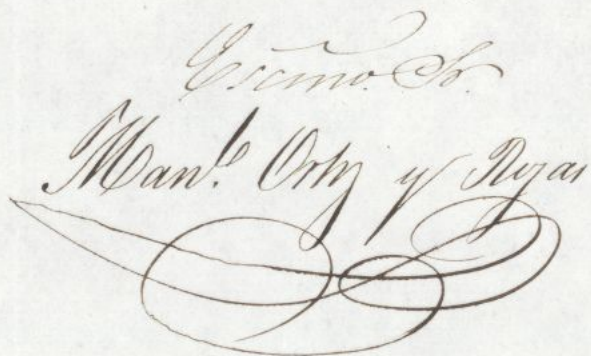 Escmo. Sr.
Man.l Ortiz y Rojas